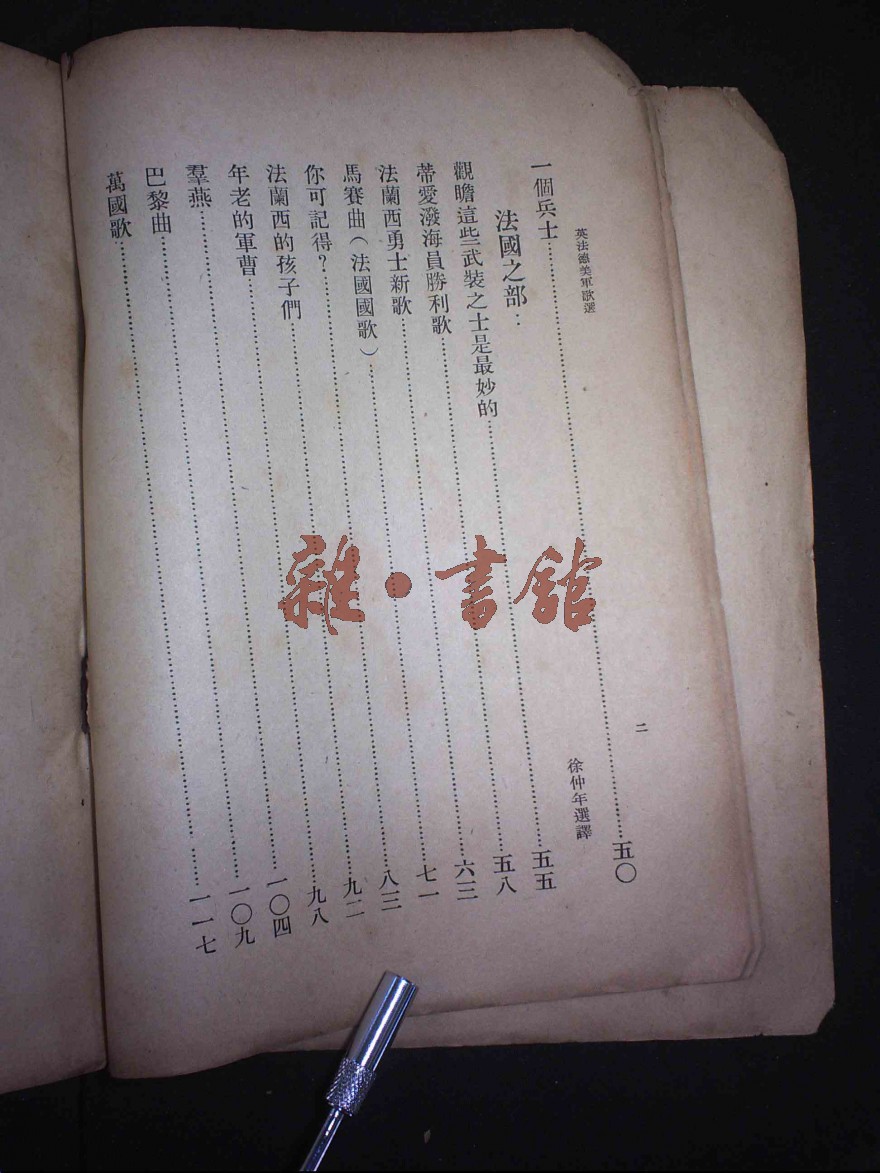 英法德美軍歌選 二
一個兵士……五〇
法國之部： 徐仲年選譯
觀瞻這些武裝之士是最妙的……五五
蒂愛潑海員勝利歌……五八
法蘭西勇士新歌……六三
馬賽曲（法國國歌）……七一
你可記得？……八三
法蘭西的孩子們……九二
年老的軍曹……九八
羣燕……一〇四
巴黎曲……一〇九
萬國歌……一一七
雜·書館